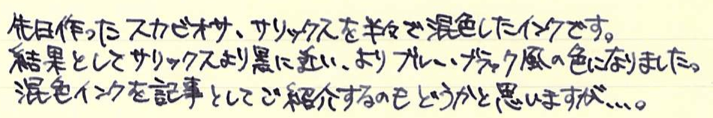 先日作ったスカビオサ、サリックスを半々で混色したインクです。
結果としてサリックスより黒に近い、よりブルーブラック風の色になりました。
混色インクを記事としてご紹介するのもどうかと思いますが…。